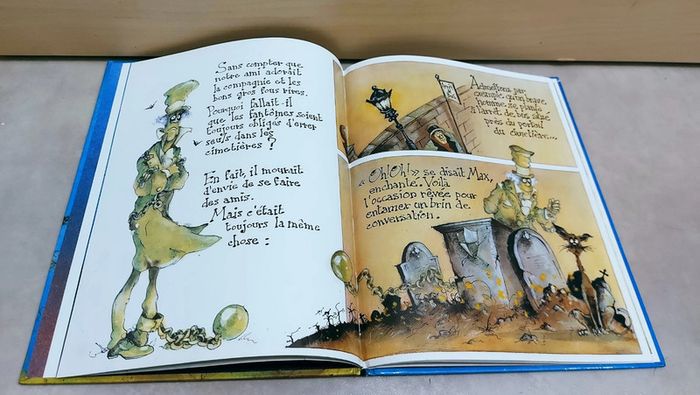 Sans compter que
notre ami adorait
la compagnie et les
bons gros fous rires.
Pourquoi fallait-il
que les fantômes soient
toujours obligés d'errer
seuls dans les
cimetières ?
En fait, il mourait
d'envie de se faire
des amis.
Mais c'était
toujours la même
chose :
Admettons, par
exemple, qu'un brave
homme se plante
à l'arrêt de bus situé
près du portail
du cimetière...
« Oh! Oh! » se disait Max,
enchanté. Voilà
l'occasion rêvée pour
entamer un brin de
conversation.